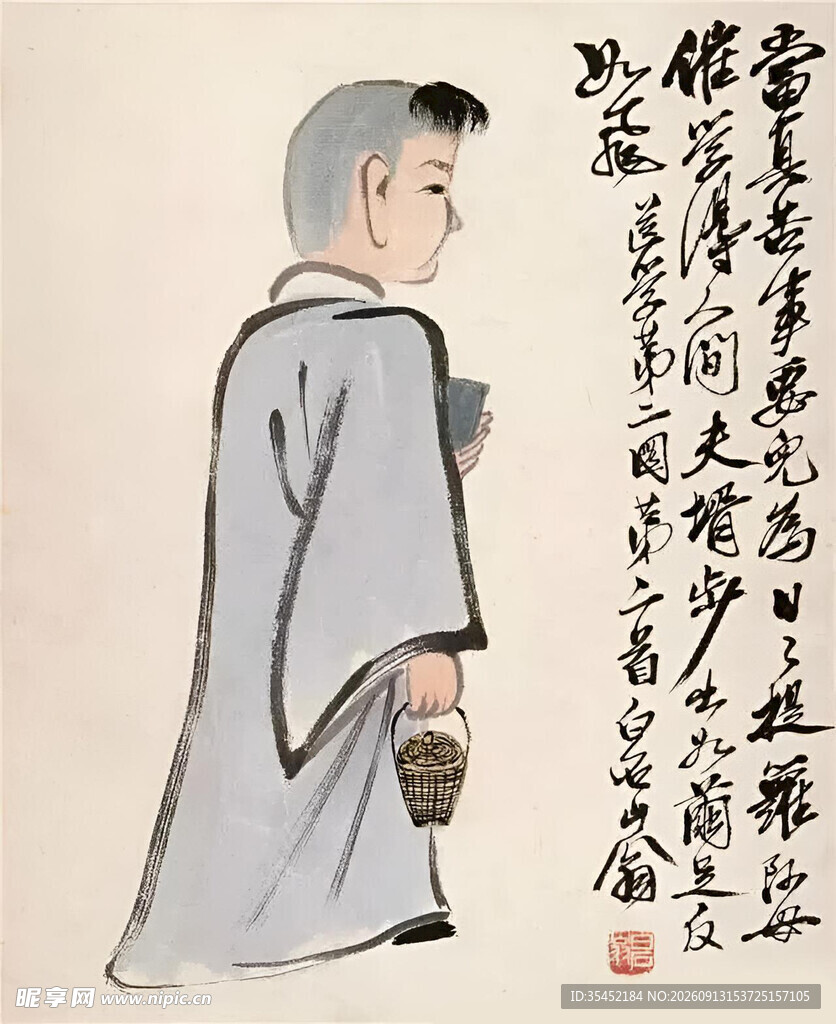 當真苦事要兒為日々提籮阿母
催學得人間夫壻步出如繭足反
如飛 送學第二圖第二首白石山翁
白石翁
昵享网 www.nipic.cn
ID:35452184 NO:20260913153725157105